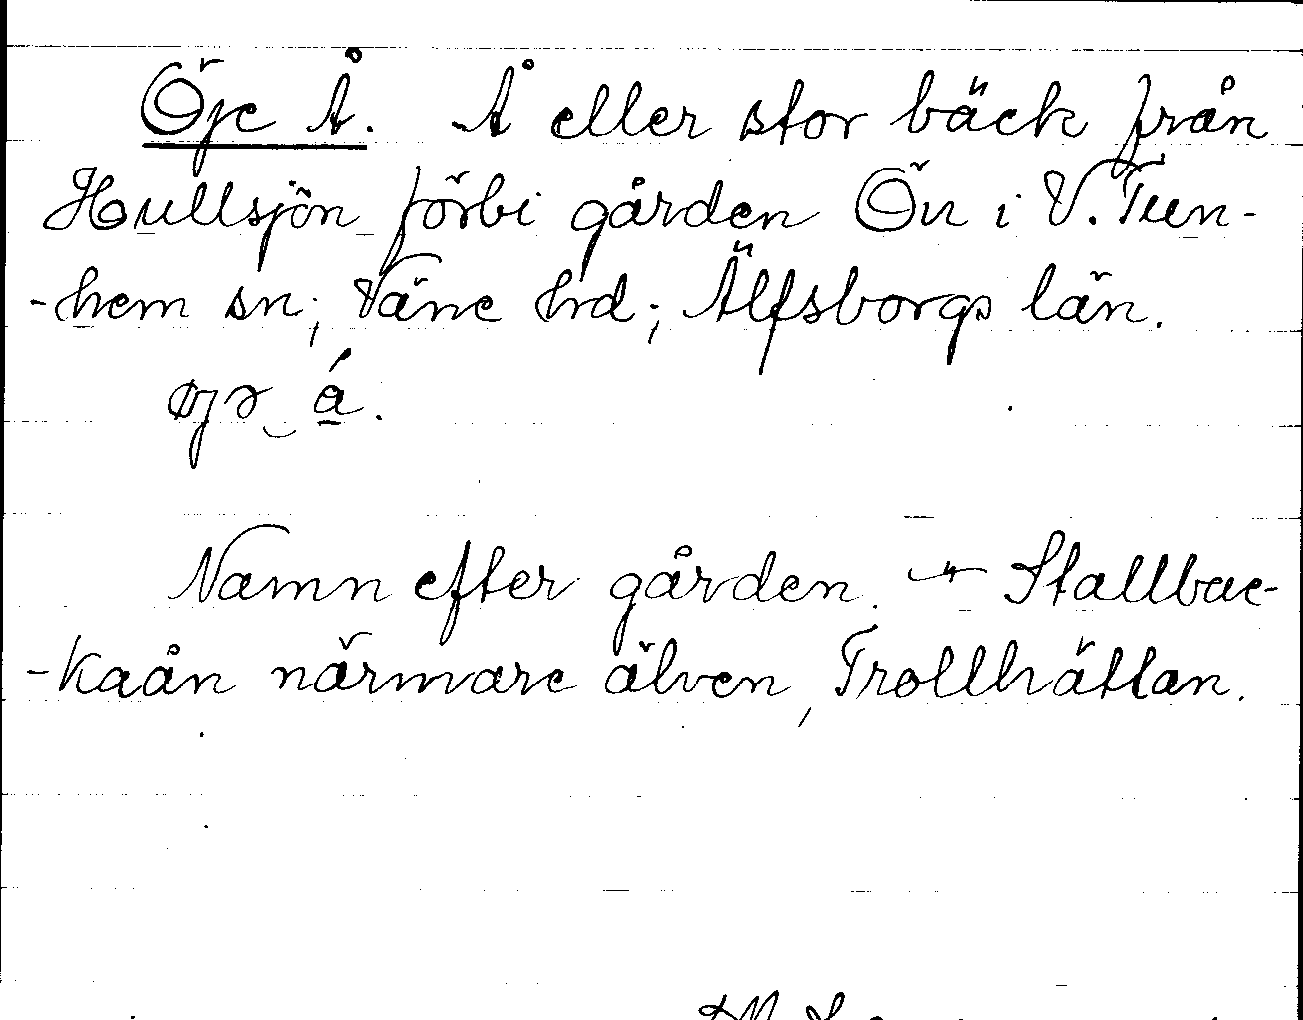 Öje Å. Å eller stor bäck från
Hullsjön förbi gården Ön i V. Tun-
-hem sn; Väne hrd; Älfsborgs län.
øjə á.
Namn efter gården. → Stallbac-
-kaån närmare älven, Trollhättan.